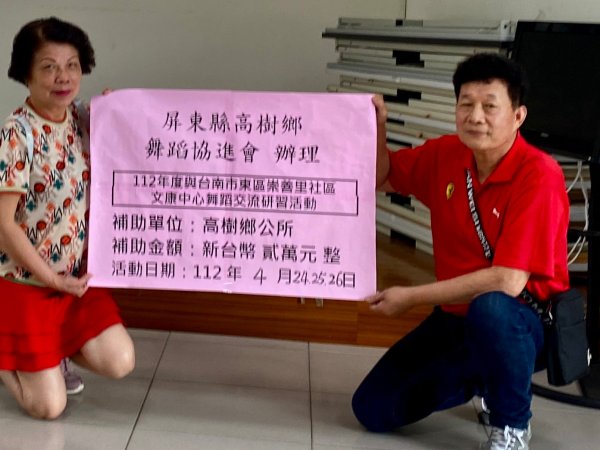 屏東縣高樹鄉
舞蹈協進會 辦理
112年度與台南市東區崇善里社區
文康中心舞蹈交流研習活動
補助單位：高樹鄉公所
補助金額：新台幣 貳萬元 整
活動日期：112年 4 月24.25.26日